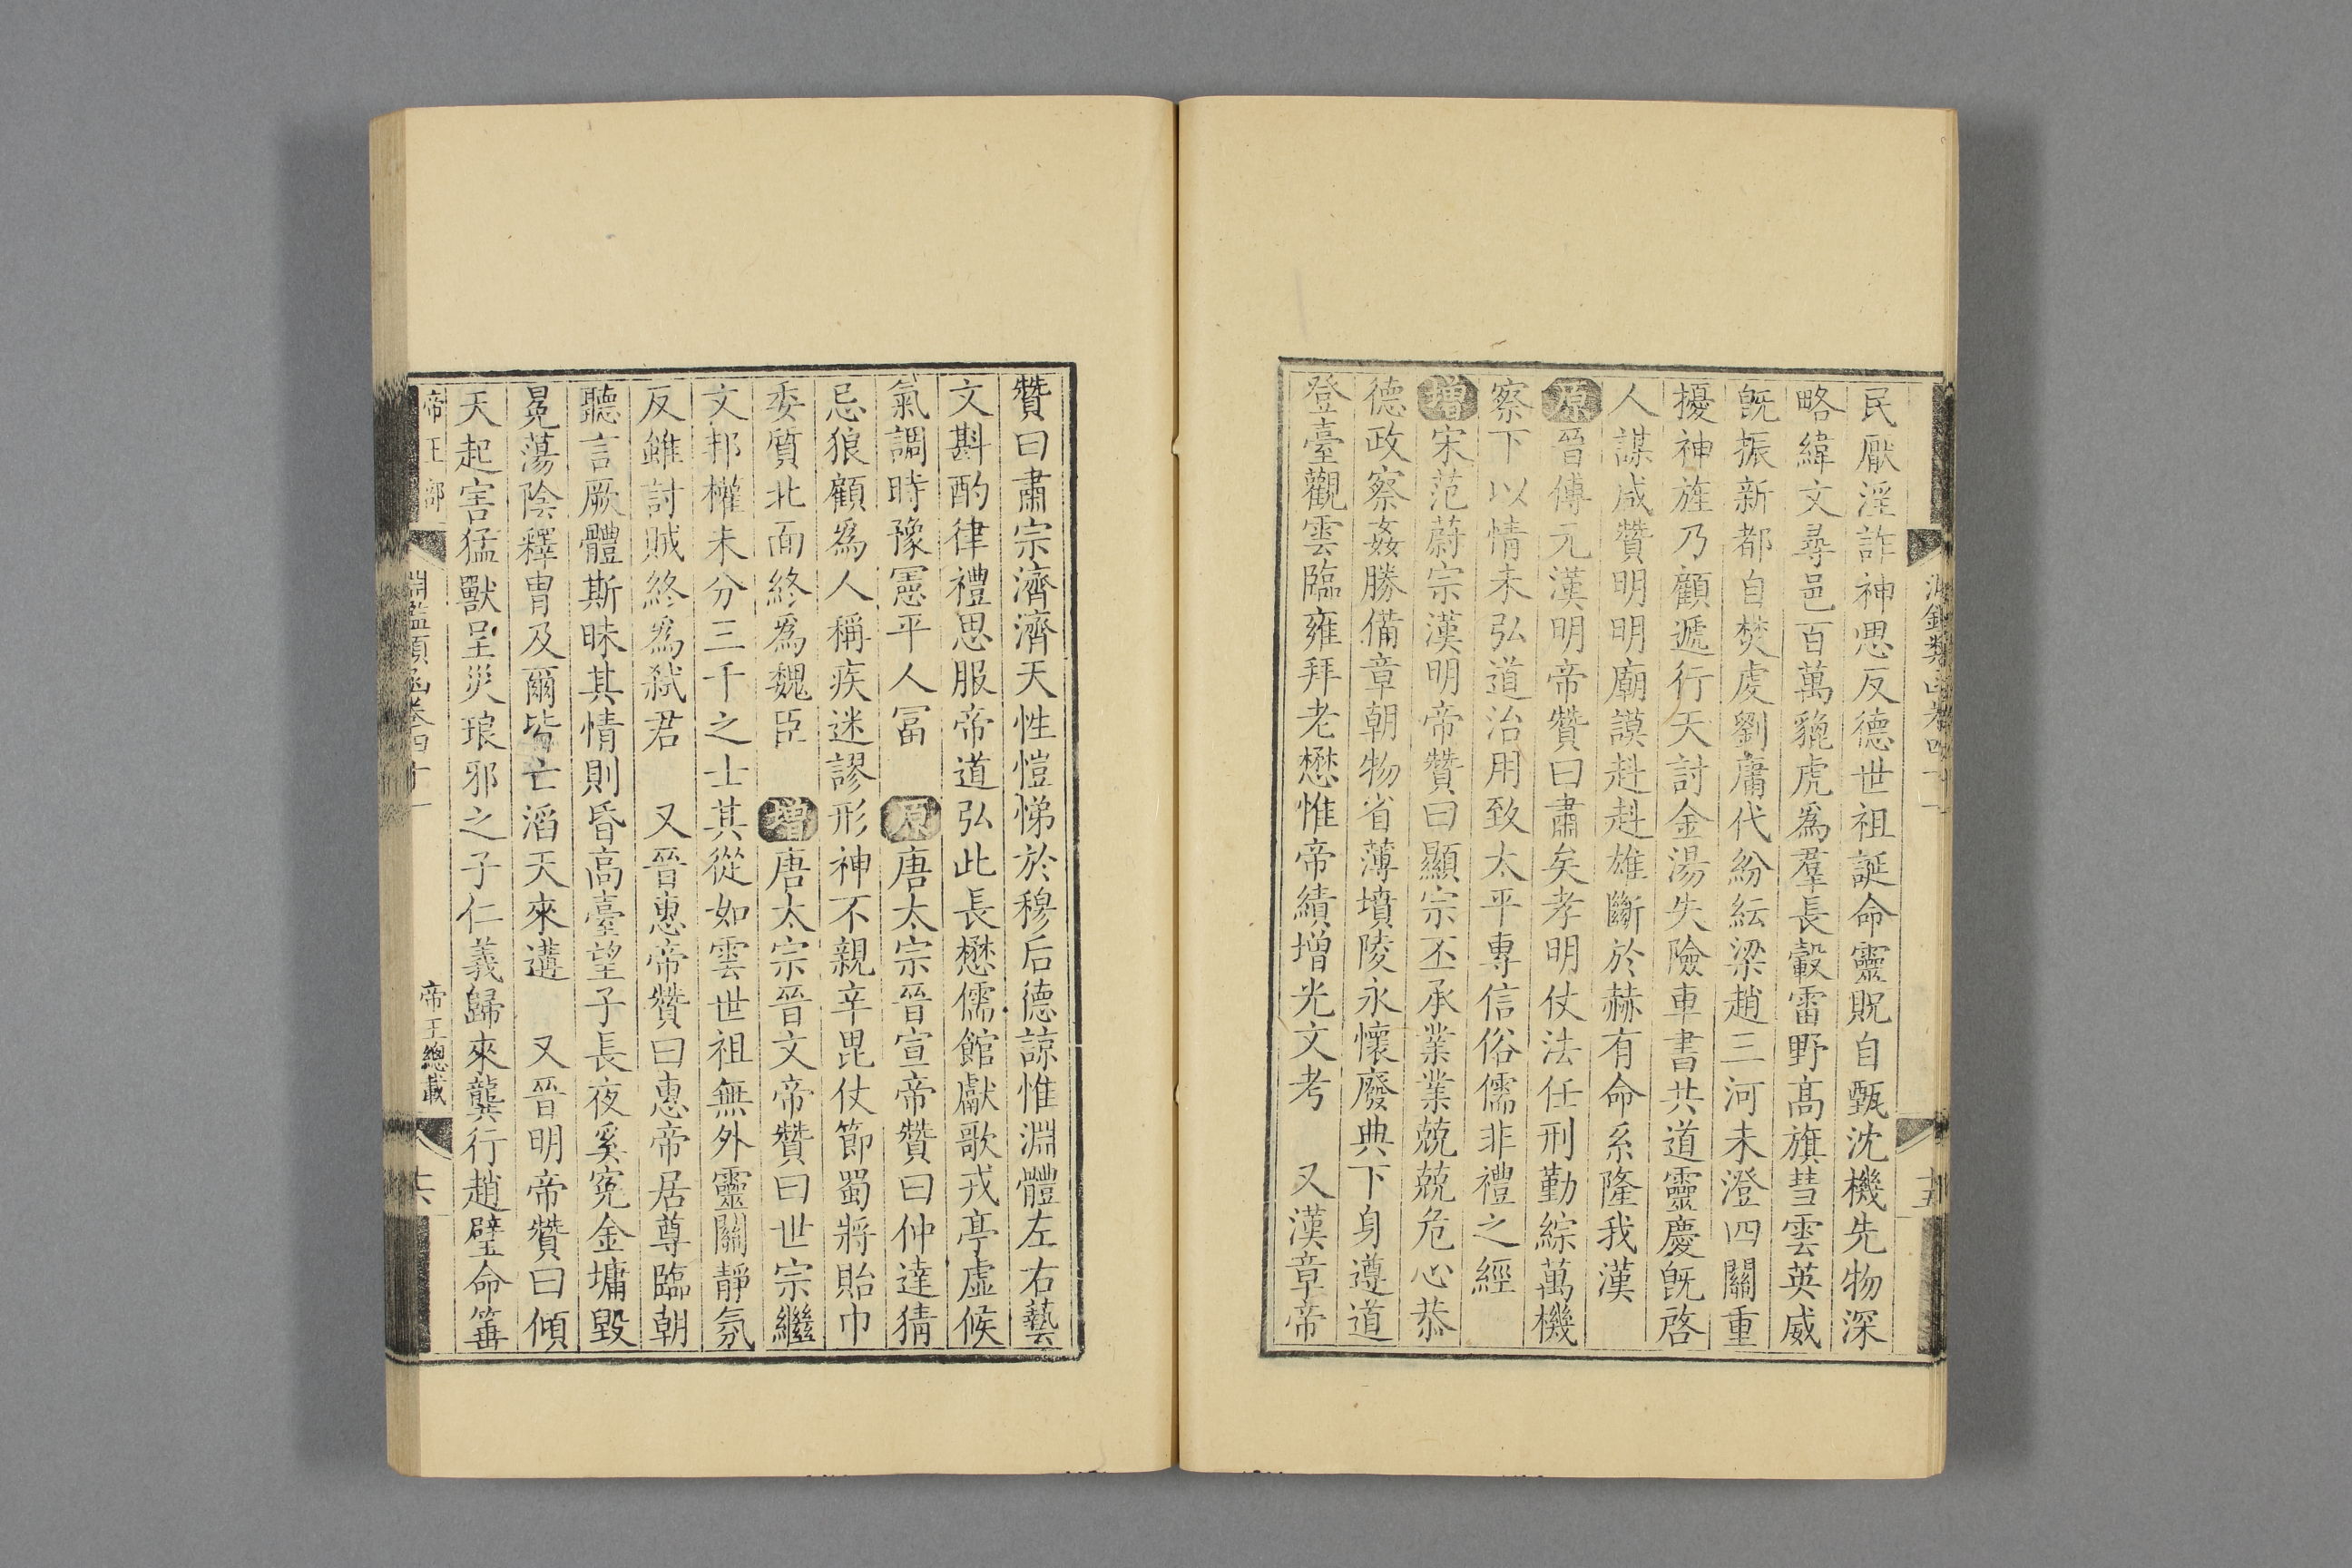 民厭淫詐神思反德世祖誕命靈貺自甄沈機先物深
略緯文尋邑百萬貔虎爲羣長轂雷野高旗彗雲英威
旣振新都自焚虔劉庸代紛紜梁趙三河未澄四關重
擾神旌乃顧遞行天討金湯失險車書共道靈慶旣啓
人謀咸贊明明廟謨赳赳雄斷於赫有命系隆我漢
原晉傅元漢明帝贊曰肅矣孝明仗法任刑勤綜萬機
察下以情未弘道治用致太平專信俗儒非禮之經
增宋范蔚宗漢明帝贊曰顯宗丕承業業兢兢危心恭
德政察姦勝備章朝物省薄墳陵永懷廢典下身遵道
登臺觀雲臨雍拜老懋惟帝績增光文考　又漢章帝
贊曰肅宗濟濟天性愷悌於穆后德諒惟淵體左右藝
文斟酌律禮思服帝道弘此長懋儒館獻歌戎亭虛候
氣調時豫憲平人富　原唐太宗晉宣帝贊曰仲達猜
忌狼顧爲人稱疾迷謬形神不親辛毘仗節蜀將貽巾
委質北面終爲魏臣　增唐太宗晉文帝贊曰世宗繼
文邦權未分三千之士其從如雲世祖無外靈關靜氛
反雖討賊終爲弒君　又晉惠帝贊曰惠帝居尊臨朝
聽言厥體斯昧其情則昏高臺望子長夜奚寃金墉毀
冕蕩陰釋胄及爾皆亡滔天來遘　又晉明帝贊曰傾
天起害猛獸呈災琅邪之子仁義歸來龔行趙璧命箠
帝王部　淵鑑類函卷四十一　帝王總載　十六